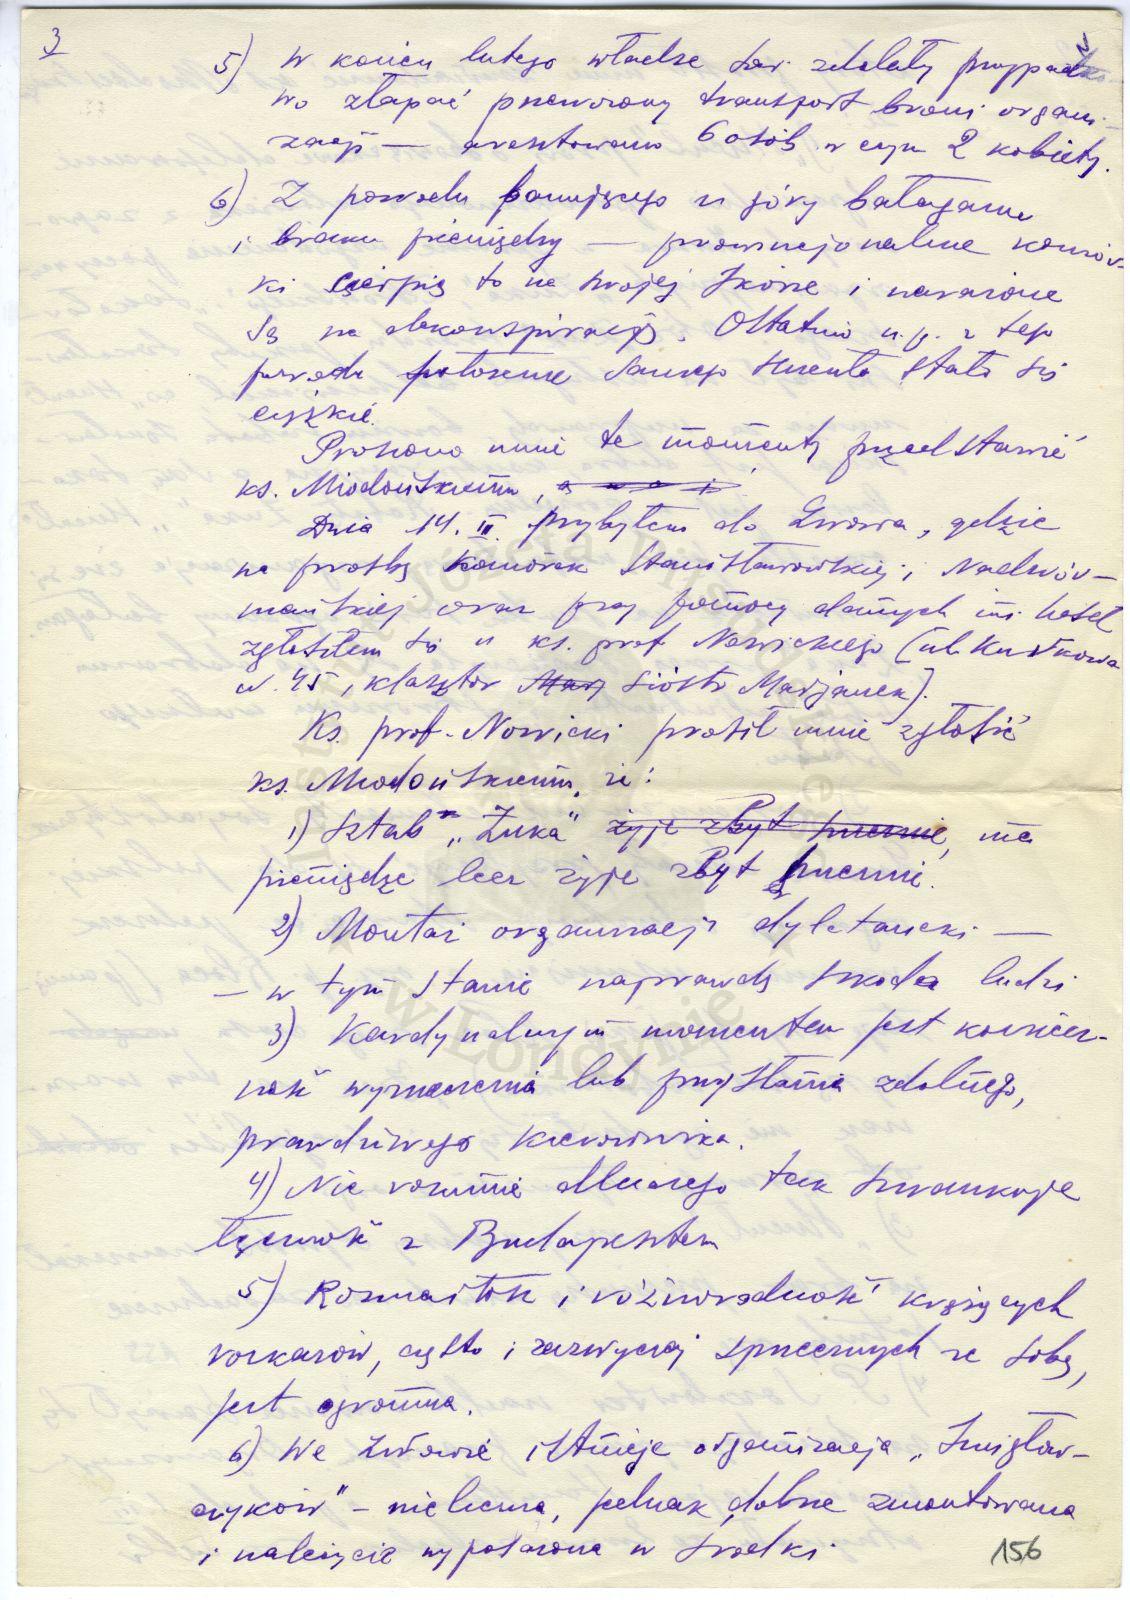 3
5) w końcu lutego władze sow. zdołały przypadko-
wo złapać przewożony transport broni organi-
zacji — aresztowano 6 osób w czym 2 kobiety.
6) Z powodu panującego u góry bałaganu
i braku pieniędzy — prowincjonalne komór-
ki cierpią to na swojej skórze i narażone
są na dekonspirację. Ostatnio n.p. z tego
powodu położenie samego Huenta stało się
ciężkie.
Proszono mnie te momenty przedstawić
ks. Miodońskiemu,
Dnia 14. II. przybyłem do Lwowa, gdzie
na prośbę komórek Stanisławowskiej i Nadwór-
niańskiej oraz przy pomocy danych mi haseł
zgłosiłem się u ks. prof Nowickiego (ul. Kurkowa
N. 45, klasztor Marj Sióstr Marjanek).
Ks. prof. Nowicki prosił mnie zgłosić
ks. Miodońskiemu, że:
1) Sztab „Żuka" żyje zbyt huernie, ma
pieniądze lecz żyje zbyt huernie.
2) Montaż organizacji dyletancki —
— w tym stanie naprawdę szkoda ludzi
3) Kardynalnym momentem jest koniecz-
ność wyznaczenia lub przysłania zdolnego,
prawdziwego kierownika.
4) Nie rozumie dlaczego tak szwankuje
łączność z Budapesztem
5) Rozmaitość i różnorodność krążących
rozkazów, często i zazwyczaj sprzecznych ze sobą,
jest ogromna.
6) We Lwowie istnieje organizacja „Smigław-
czyków" – nieliczna, jednak dobrze zmontowana
i należycie wyposażona w środki.
156